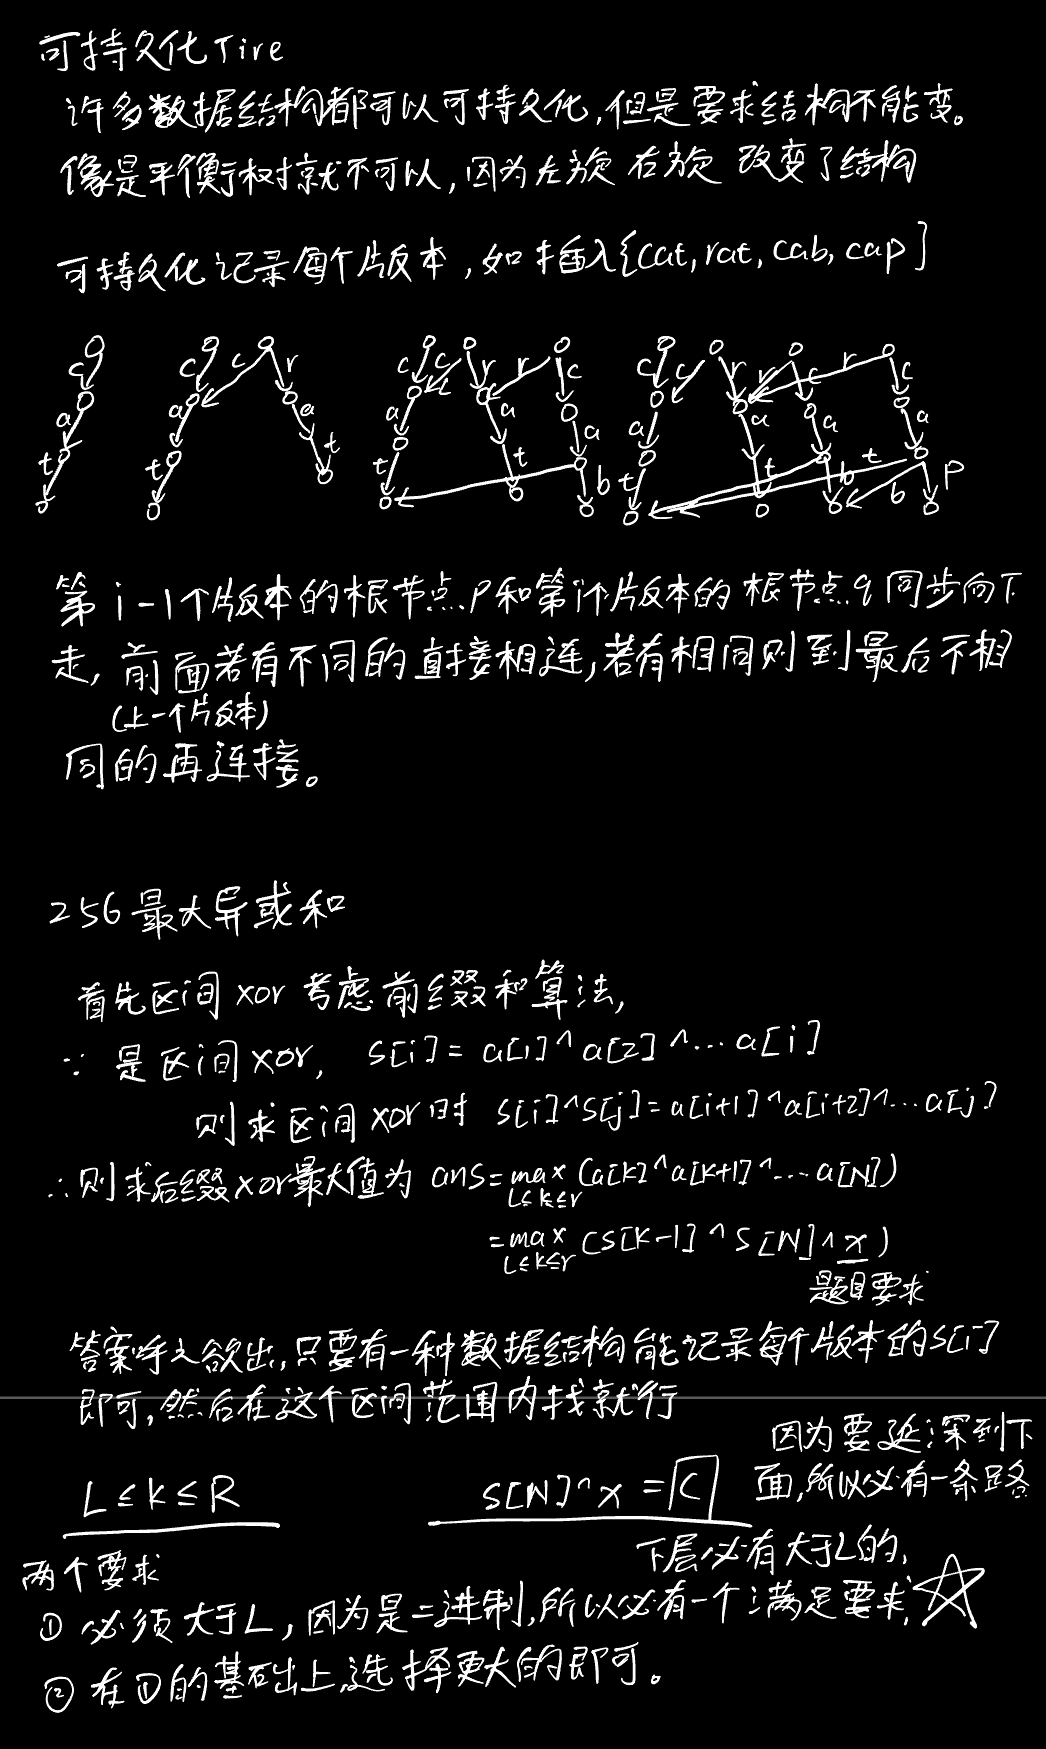 可持久化Tire
许多数据结构都可以可持久化,但是要求结构不能变。
像是平衡树就不可以,因为左旋 右旋 改变了结构
可持久化记录每个版本,如插入{cat,rat,cab,cap]
c c c r c c r r c c c r r c r c
a a a a a a a a a a
t t t t t b t t b t b p
第i-1个版本的根节点p和第i个版本的根节点q同步向下
走,前面若有不同的直接相连,若有相同则到最后不相
(上一个版本)
同的再连接。
256最大异或和
首先区间xor考虑前缀和算法,
∵是区间xor, s[i]=a[1]^a[2]^...a[i]
则求区间xor时 s[i]^s[j]=a[i+1]^a[i+2]^...a[j]
∴则求后缀xor最大值为 ans=max(a[k]^a[k+1]^...a[N])
L≤k≤r
=max(s[k-1]^s[N]^x)
L≤k≤r
题目要求
答案呼之欲出,只要有一种数据结构能记录每个版本的s[i]
即可,然后在这个区间范围内找就行
因为要延深到下
面,所以必有一条路
L≤k≤R
s[N]^x=C
下层必有大于L的,
两个要求
① 必须大于L,因为是二进制,所以必有一个满足要求,
② 在①的基础上,选择更大的即可。